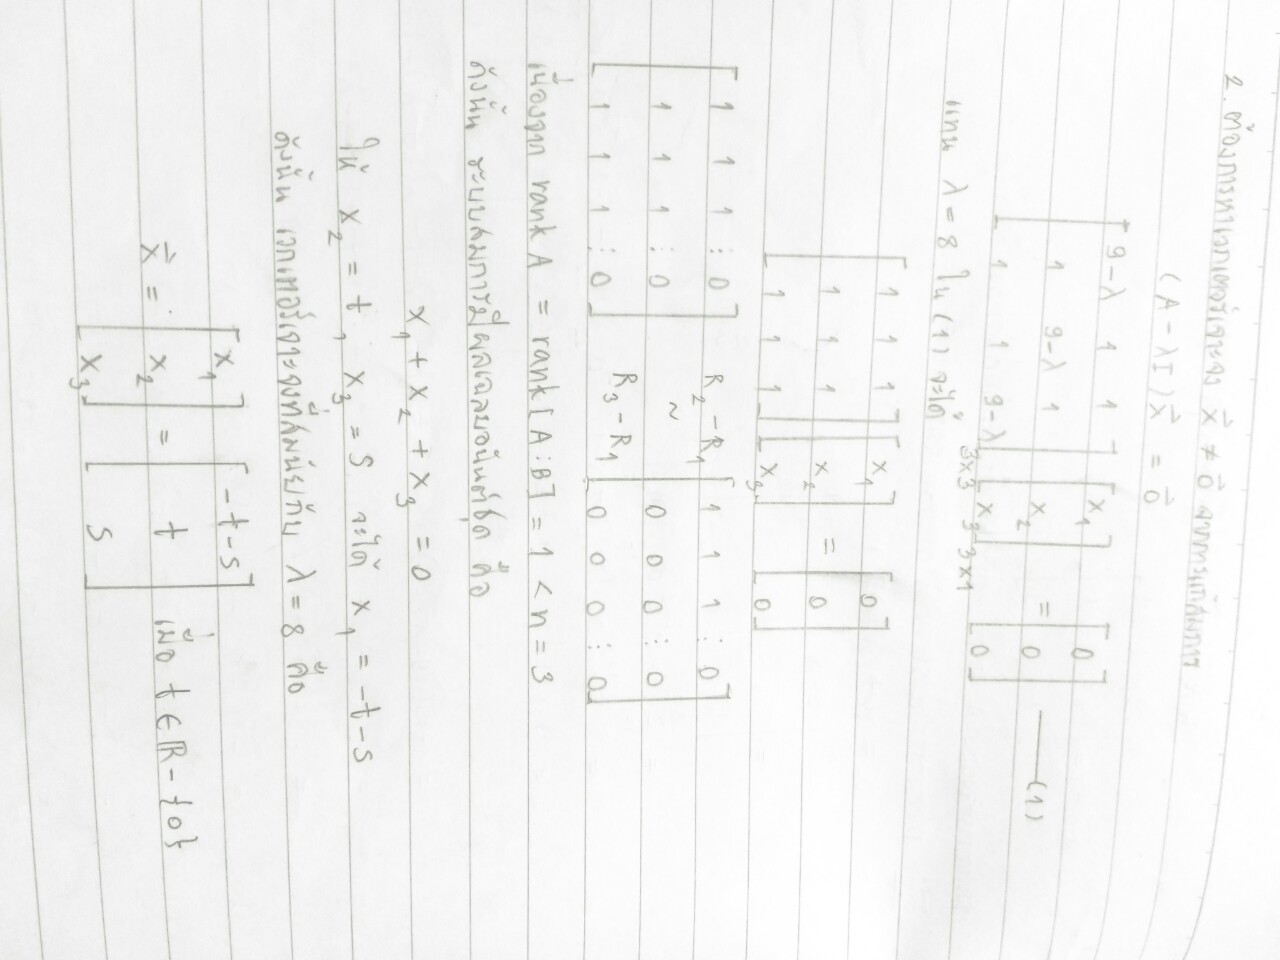 2. ต้องการหาเวกเตอร์เจาะจง x⃗ ≠ 0⃗ จากการแก้สมการ
(A - λI)x⃗ = 0⃗
[ 9-λ 1 1 ] [ x₁ ] [ 0 ]
[ 1 9-λ 1 ] [ x₂ ] = [ 0 ] ——(1)
[ 1 1 9-λ ]3x3 [ x₃ ]3x1 [ 0 ]
แทน λ = 8 ใน (1) จะได้
[ 1 1 1 ] [ x₁ ] [ 0 ]
[ 1 1 1 ] [ x₂ ] = [ 0 ]
[ 1 1 1 ] [ x₃ ] [ 0 ]
[ 1 1 1 ⋮ 0 ] R₂-R₁ [ 1 1 1 ⋮ 0 ]
[ 1 1 1 ⋮ 0 ] ~ [ 0 0 0 ⋮ 0 ]
[ 1 1 1 ⋮ 0 ] R₃-R₁ [ 0 0 0 ⋮ 0 ]
เนื่องจาก rank A = rank[A⋮B] = 1 < n = 3
ดังนั้น ระบบสมการมีผลเฉลยอนันต์ชุด คือ
x₁ + x₂ + x₃ = 0
ให้ x₂ = t, x₃ = s จะได้ x₁ = -t-s
ดังนั้น เวกเตอร์เจาะจงที่สมนัยกับ λ = 8 คือ
[ x₁ ] [ -t-s ]
x⃗ = [ x₂ ] = [ t ] เมื่อ t ∈ ℝ - {0}
[ x₃ ] [ s ]